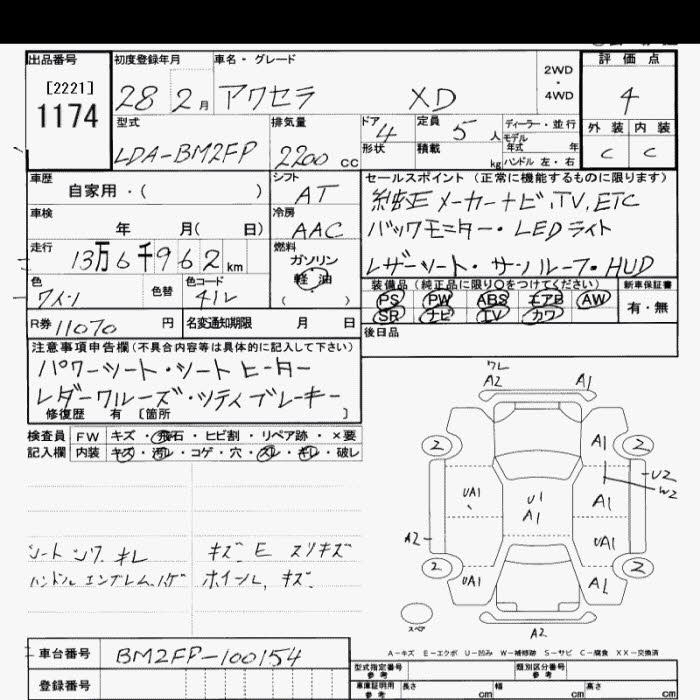 出品番号
[2221]
1174
初度登録年月
28 2月
車名・グレード
アクセラ XD
2WD
・
4WD
評価点
4
外装 内装
C C
型式
LDA-BM2FP
排気量
2200 cc
ドア 4
形状
定員 5 人
積載 kg
ディーラー・並行
モデル
年式 年
ハンドル 左・右
車歴
自家用・( )
シフト
AT
車検
年 月( 日)
冷房
AAC
走行
13万6千962km
燃料
ガソリン
軽油
( )
色
ワイン
色替
色コード
41レ
R券 11070 円
名変通知期限 月 日
セールスポイント(正常に機能するものに限ります)
純正メーカーナビ,TV,ETC
バックモニター・LEDライト
レザーシート・サンルーフ・HUD
装備品(純正品に限り○をつけてください)
PS PW ABS エアB AW
SR ナビ TV カワ
新車保証書
有・無
後日品
注意事項申告欄(不具合内容等は具体的に記入して下さい)
パワーシート・シートヒーター
レダークルーズ・シティブレーキー
修復歴 有 〔箇所 〕
検査員
記入欄
FW キズ・飛石・ヒビ割・リペア跡・×要
内装 キズ・汚レ・コゲ・穴・スレ・キレ・破レ
シート シワ キレ
ハンドル エンブレム ハゲ
キズ E スリキズ
ホイール キズ
ワレ
A2 A1
2 A1 2
U2
W2
UA1 U1
A1 A1
A2 UA1
2 2
UA1 A1
スペア
A2
A-キズ E-エクボ U-凹み W-補修跡 S-サビ C-腐食 XX-交換済
車台番号
BM2FP-100154
登録番号
型式指定番号
参考
類別区分番号
参考
車庫証明用
参考
長さ cm
幅 cm
高さ cm